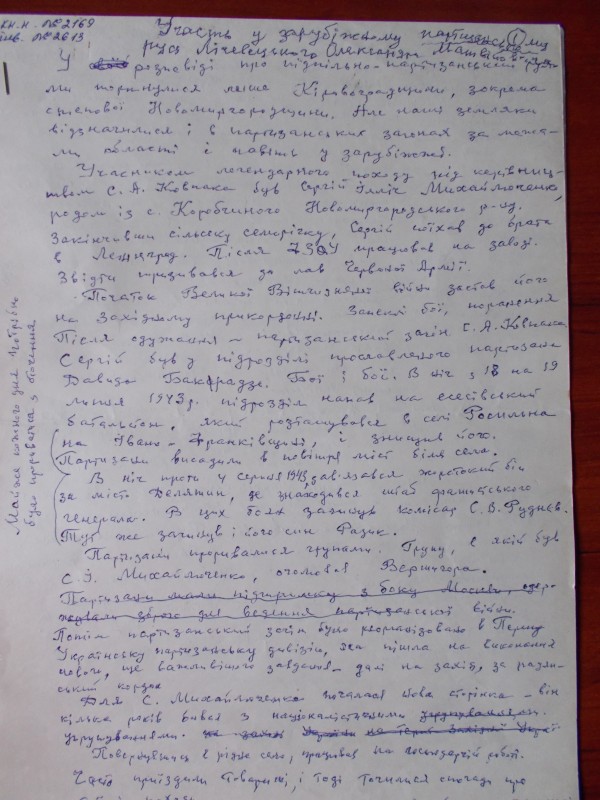 кн.н. №2169
інв. №2613
Участь у зарубіжному партизанському
русі Лічевецького Олександра Матвійовича
У розповіді про підпільно-партизанський рух
ми торкнулися лише Кіровоградщини, зокрема
степової Новомиргородщини. Але наші земляки
відзначилися і в партизанських загонах за межа-
ми області і навіть у зарубіжжі.
Учасником легендарного походу під керівниц-
твом С. А. Ковпака був Сергій Ілліч Михайлюченко,
родом із с. Коробчиного Новомиргородського р-ну.
Закінчивши сільську семирічку, Сергій поїхав до брата
в Ленінград. Після ФЗУ працював на заводі.
Звідти призивався до лав Червоної Армії.
Початок Великої Вітчизняної війни застав його
на західному прикордонні. Запеклі бої, поранення
Після одужання - партизанський загін С. А. Ковпака.
Сергій був у підрозділі прославленого партизана
Давида Бакрадзе. Бої і бої. В ніч з 18 на 19
липня 1943 р. підрозділ напав на есесівський
батальйон, який розташувався в селі Росільна
на Івано-Франківщині, і знищив його.
Партизани висадили в повітря міст біля села.
В ніч проти 4 серпня 1943, зав'язався жорстокий бій
за місто Делятин, де знаходився штаб фашистського
генерала. В цих боях загинув комісар С. В. Руднєв.
Тут же загинув і його син Радик.
Майже кожного дня потрібно
було прориватися з оточення
Партизани проривалися групами. Групу, в якій був
С. І. Михайлюченко, очолював Вершигора.
Партизани мали підтримку з боку Москви, одер-
жували зброю для ведення партизанської війни.
Потім партизанський загін було реорганізовано в Першу
Українську партизанську дивізію, яка пішла на виконання
нового, ще важливішого завдання - далі на захід, за радян-
ський кордон
Для С. Михайлюченка почалася нова сторінка - він
кілька років бився з націоналістичними угрупуваннями
угрупуваннями.
Повернувшись в рідне село, працював на господарчій роботі.
Часто приїздили товариші, і тоді точилися спогади про